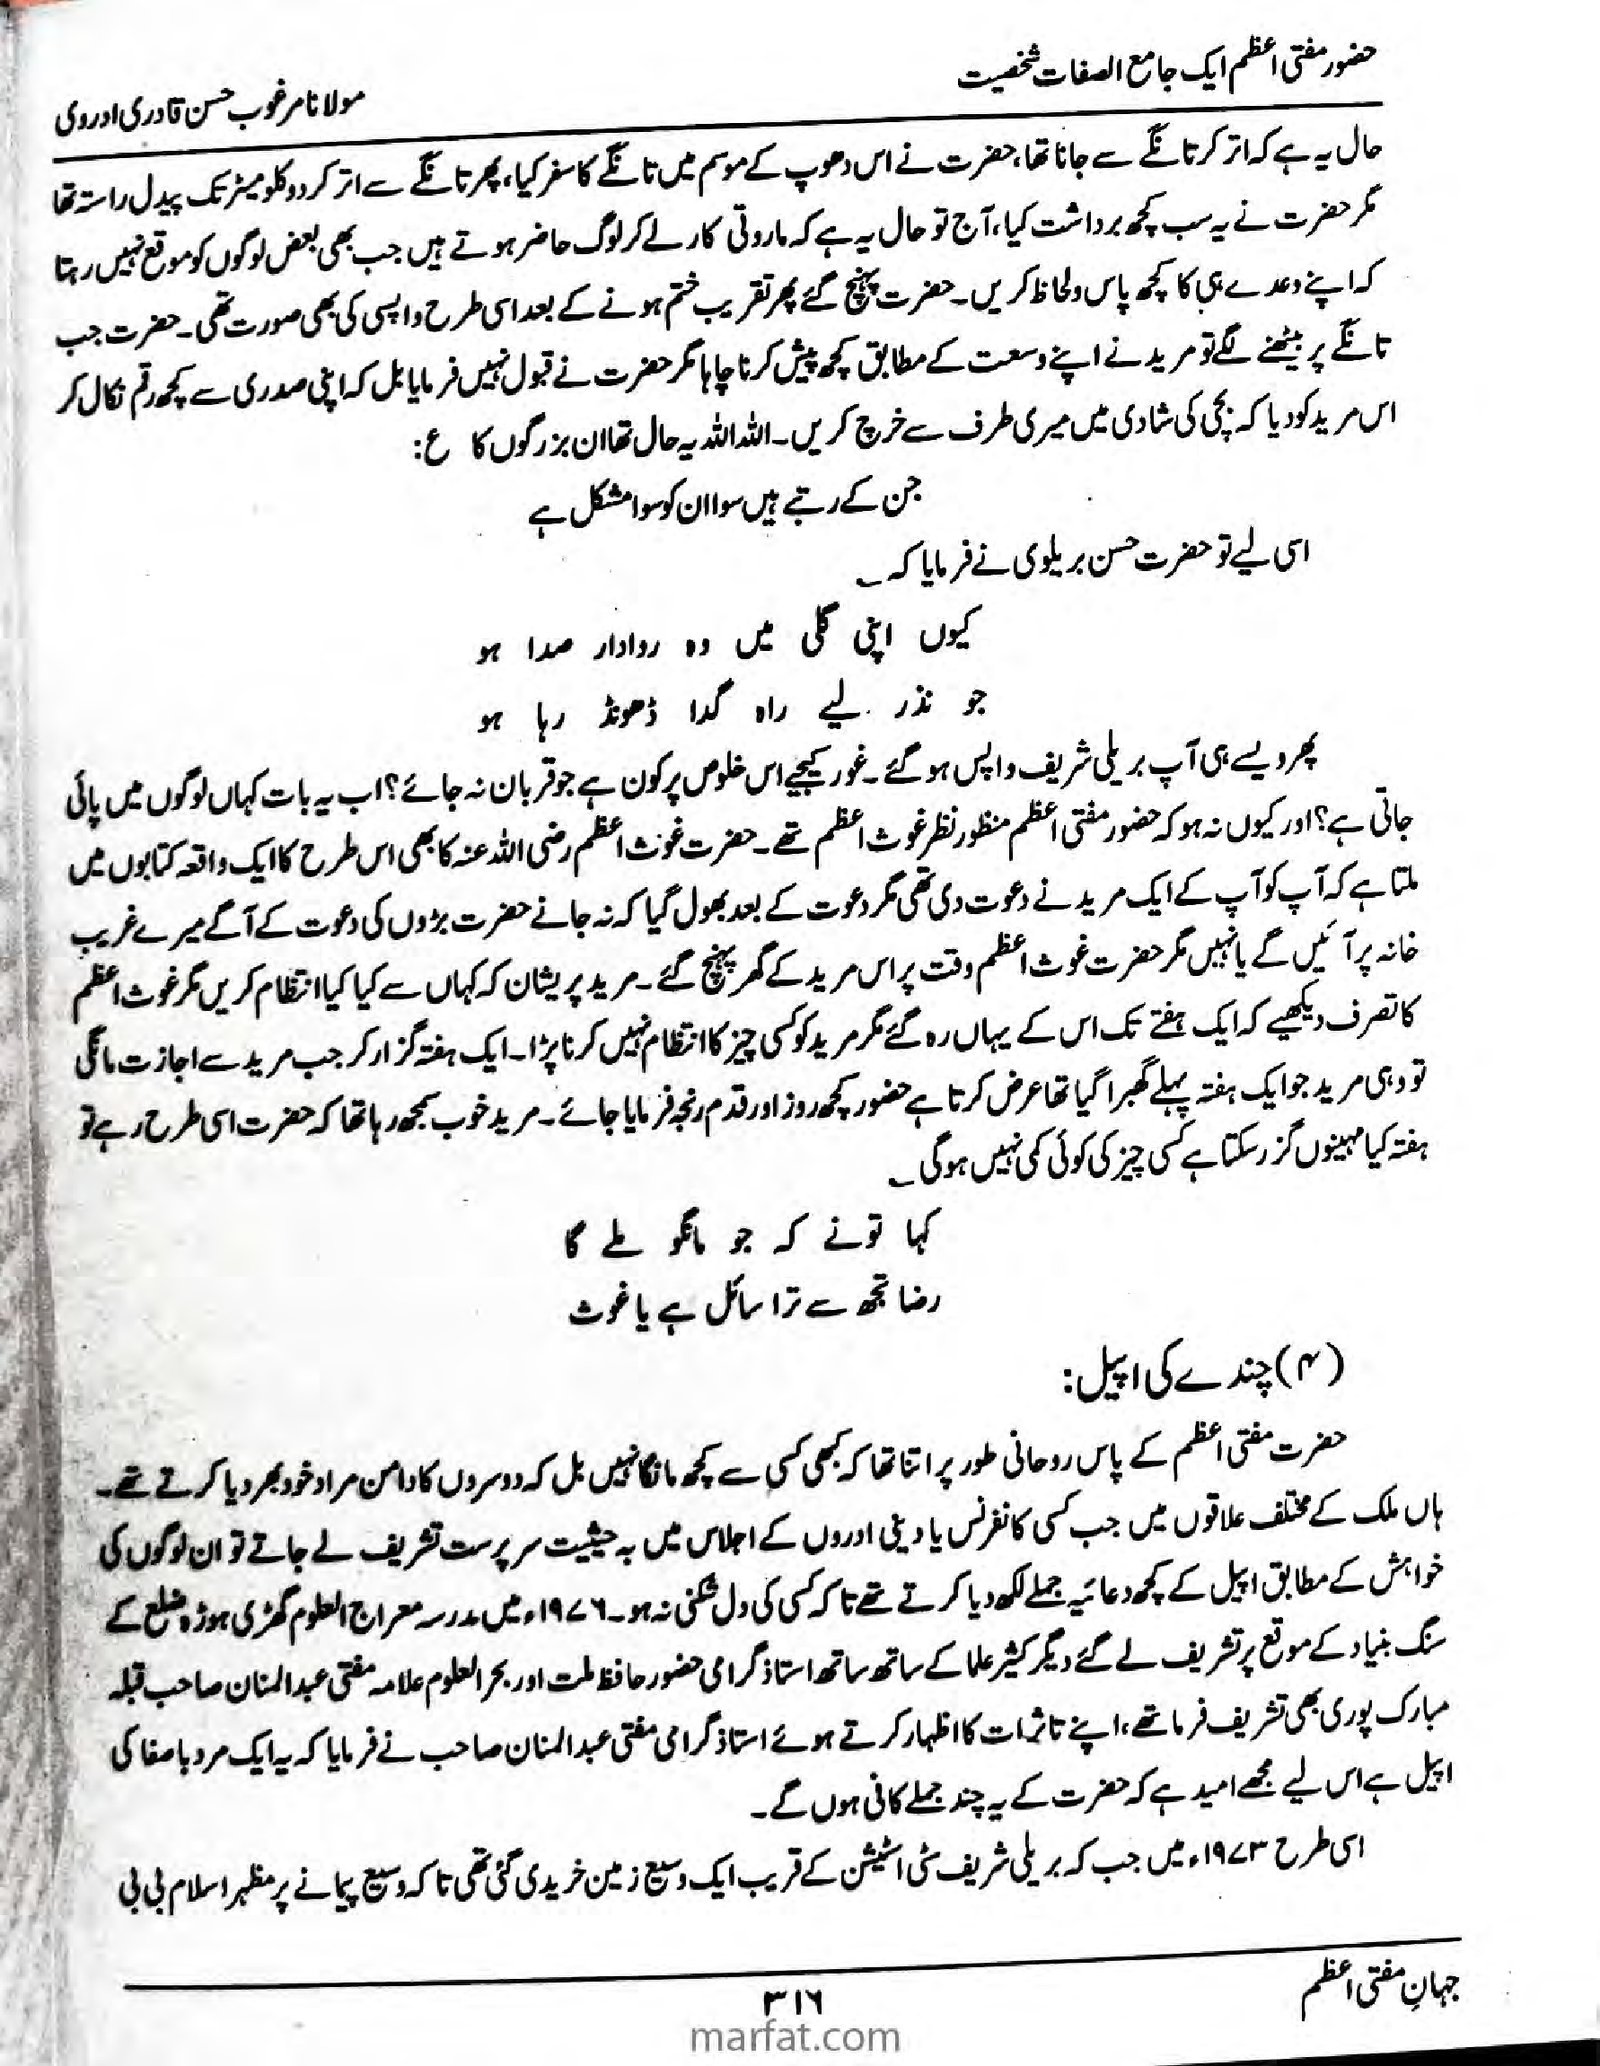 حضور مفتی اعظم ایک جامع الصفات شخصیت
مولانا مرغوب حسن قادری ادروی
حال یہ ہے کہ اتر کر تانگے سے جانا تھا، حضرت نے اس دھوپ کے موسم میں تانگے کا سفر کیا، پھر تانگے سے اتر کر دو کلو میٹر تک پیدل راستہ تھا
مگر حضرت نے یہ سب کچھ برداشت کیا، آج تو حال یہ ہے کہ ماروتی کار لے کر لوگ حاضر ہوتے ہیں جب بھی بعض لوگوں کو موقع نہیں رہتا
کہ اپنے وعدے ہی کا کچھ پاس ولحاظ کریں۔ حضرت پہنچ گئے پھر تقریب ختم ہونے کے بعد اسی طرح واپسی کی بھی صورت تھی۔ حضرت جب
تانگے پر بیٹھنے لگے تو مرید نے اپنے وسعت کے مطابق کچھ پیش کرنا چاہا مگر حضرت نے قبول نہیں فرمایا بل کہ اپنی صدری سے کچھ رقم نکال کر
اس مرید کو دیا کہ بچی کی شادی میں میری طرف سے خرچ کریں۔ اللہ اللہ یہ حال تھا ان بزرگوں کا ع:
جن کے رتبے ہیں سوا ان کو سوا مشکل ہے
اسی لیے تو حضرت حسن بریلوی نے فرمایا کہ ؂
کیوں اپنی گلی میں وہ روادار صدا ہو
جو نذر لیے راہ گدا ڈھونڈ رہا ہو
پھر ویسے ہی آپ بریلی شریف واپس ہو گئے۔ غور کیجیے اس خلوص پر کون ہے جو قربان نہ جائے؟ اب یہ بات کہاں لوگوں میں پائی
جاتی ہے؟ اور کیوں نہ ہو کہ حضور مفتی اعظم منظور نظر غوث اعظم تھے۔ حضرت غوث اعظم رضی اللہ عنہ کا بھی اس طرح کا ایک واقعہ کتابوں میں
ملتا ہے کہ آپ کو آپ کے ایک مرید نے دعوت دی تھی مگر دعوت کے بعد بھول گیا کہ نہ جانے حضرت بڑوں کی دعوت کے آگے میرے غریب
خانہ پر آئیں گے یا نہیں مگر حضرت غوث اعظم وقت پر اس مرید کے گھر پہنچ گئے۔ مرید پریشان کہ کہاں سے کیا کیا انتظام کریں مگر غوث اعظم
کا تصرف دیکھیے کہ ایک ہفتے تک اس کے یہاں رہ گئے مگر مرید کو کسی چیز کا انتظام نہیں کرنا پڑا۔ ایک ہفتہ گزار کر جب مرید سے اجازت مانگی
تو وہی مرید جو ایک ہفتہ پہلے گھبرا گیا تھا عرض کرتا ہے حضور کچھ روز اور قدم رنجہ فرمایا جائے۔ مرید خوب سمجھ رہا تھا کہ حضرت اسی طرح رہے تو
ہفتہ کیا مہینوں گزر سکتا ہے کسی چیز کی کوئی کمی نہیں ہوگی ؂
کہا تو نے کہ جو مانگو ملے گا
رضا تجھ سے ترا سائل ہے یا غوث
(۴) چندے کی اپیل:
حضرت مفتی اعظم کے پاس روحانی طور پر اتنا تھا کہ کبھی کسی سے کچھ مانگا نہیں بل کہ دوسروں کا دامن مراد خود بھر دیا کرتے تھے۔
ہاں ملک کے مختلف علاقوں میں جب کسی کانفرنس یا دینی ادروں کے اجلاس میں بہ حیثیت سرپرست تشریف لے جاتے تو ان لوگوں کی
خواہش کے مطابق اپیل کے کچھ دعائیہ جملے لکھ دیا کرتے تھے تاکہ کسی کی دل شکنی نہ ہو۔ ۱۹۷۶ء میں مدرسہ معراج العلوم گھڑی ہوڑہ ضلع کے
سنگ بنیاد کے موقع پر تشریف لے گئے دیگر کثیر علما کے ساتھ ساتھ استاذ گرامی حضور حافظ ملت اور بحر العلوم علامہ مفتی عبدالمنان صاحب قبلہ
مبارک پوری بھی تشریف فرما تھے، اپنے تاثرات کا اظہار کرتے ہوئے استاذ گرامی مفتی عبدالمنان صاحب نے فرمایا کہ یہ ایک مرد باصفا کی
اپیل ہے اس لیے مجھے امید ہے کہ حضرت کے یہ چند جملے کافی ہوں گے۔
اسی طرح ۱۹۷۳ء میں جب کہ بریلی شریف سٹی اسٹیشن کے قریب ایک وسیع زمین خریدی گئی تھی تاکہ وسیع پیمانے پر مظہر اسلام بی بی
جہانِ مفتی اعظم
۳۱۶
marfat.com